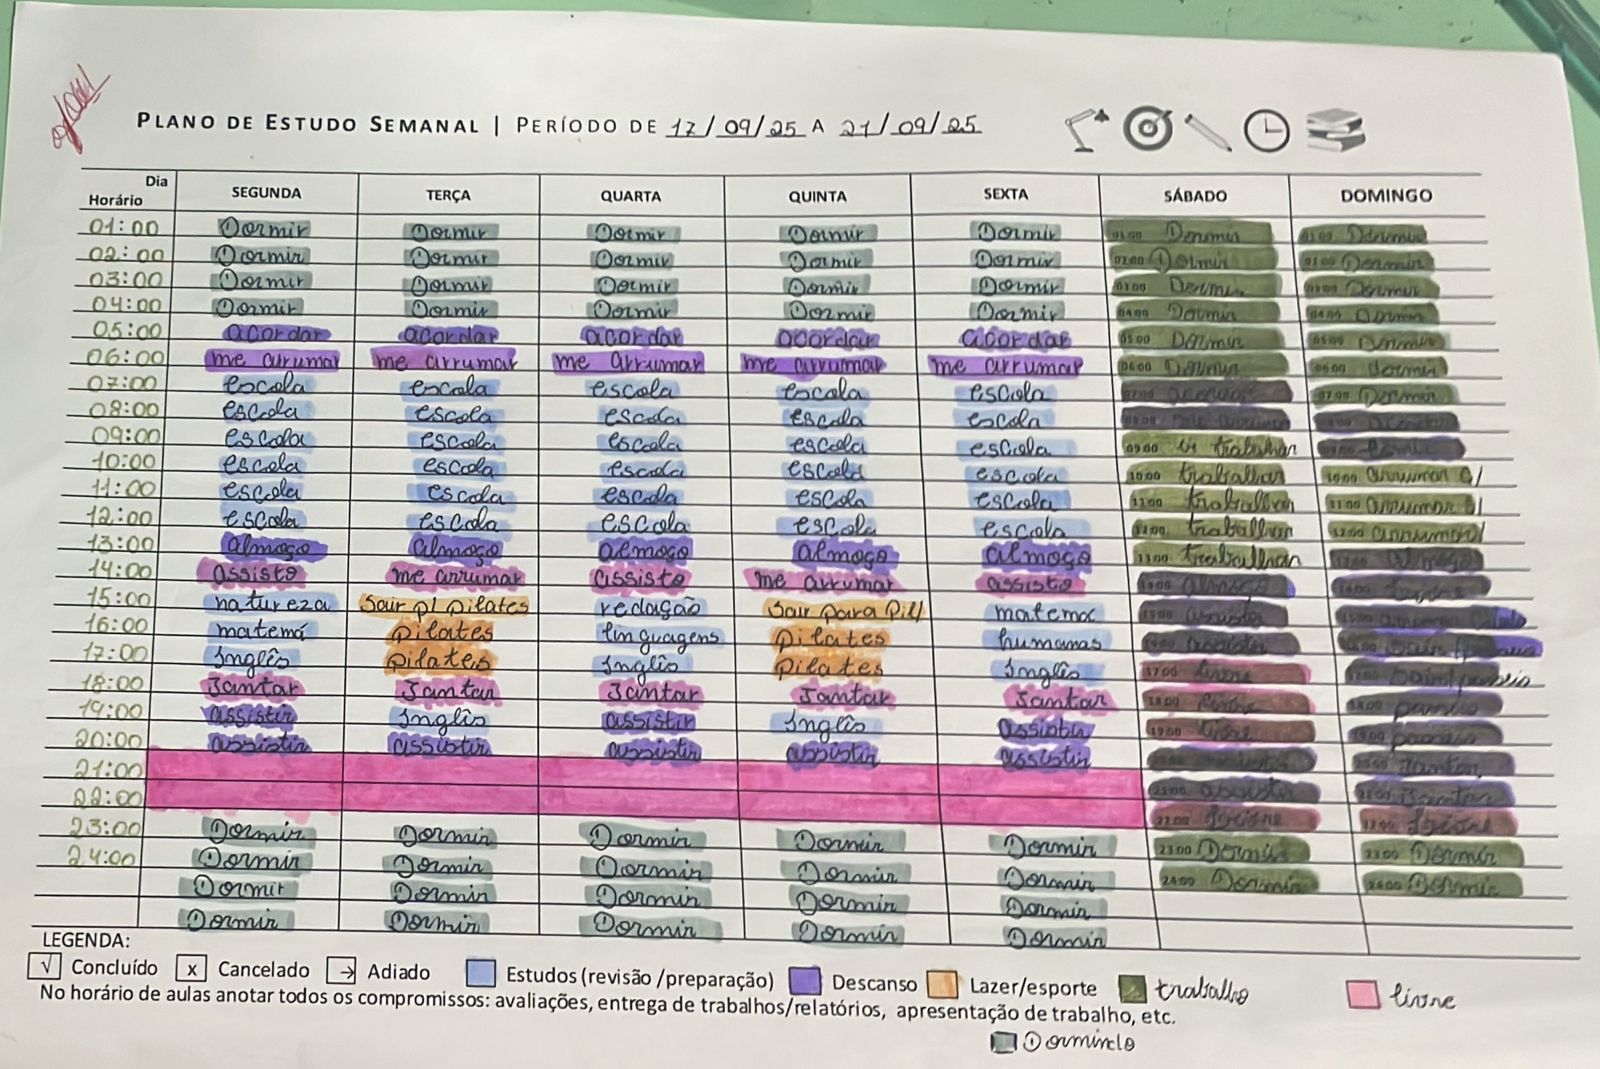 PLANO DE ESTUDO SEMANAL | PERÍODO DE 17/09/25 A 21/09/25
Dia
Horário SEGUNDA TERÇA QUARTA QUINTA SEXTA SÁBADO DOMINGO
01:00 Dormir Dormir Dormir Dormir Dormir 01:00 Dormir 01:00 Dormir
02:00 Dormir Dormir Dormir Dormir Dormir 02:00 Dormir 02:00 Dormir
03:00 Dormir Dormir Dormir Dormir Dormir 03:00 Dormir 03:00 Dormir
04:00 Dormir Dormir Dormir Dormir Dormir 04:00 Dormir 04:00 Dormir
05:00 acordar acordar acordar acordar acordar 05:00 Dormir 05:00 Dormir
06:00 me arrumar me arrumar me arrumar me arrumar me arrumar 06:00 Dormir 06:00 dormir
07:00 escola escola escola escola escola 07:00 07:00 Dormir
08:00 escola escola escola escola escola 08:00
09:00 escola escola escola escola escola 09:00 trabalhar
10:00 escola escola escola escola escola 10:00 trabalhar 10:00 arrumar
11:00 escola escola escola escola escola 11:00 trabalhar 11:00 arrumar
12:00 escola escola escola escola escola 12:00 trabalhar 12:00 arrumar
13:00 almoço almoço almoço almoço almoço 13:00 trabalhar almoço
14:00 assisto me arrumar assisto me arrumar assisto almoço
15:00 natureza Sair p/ pilates redação Sair para Pil/ matemá
16:00 matemá pilates linguagens pilates humanas
17:00 Inglês pilates Inglês pilates Inglês 17:00 livre
18:00 Jantar Jantar Jantar Jantar Jantar livre passeio
19:00 assistir Inglês assistir Inglês assistir 19:00 livre passeio
20:00 assistir assistir assistir assistir assistir Jantar
21:00 Jantar
22:00 22:00
23:00 Dormir Dormir Dormir Dormir Dormir 23:00 Dormir 23:00 Dormir
24:00 Dormir Dormir Dormir Dormir Dormir 24:00 Dormir 24:00 Dormir
Dormir Dormir Dormir Dormir Dormir
Dormir Dormir Dormir Dormir Dormir
LEGENDA:
√ Concluído x Cancelado → Adiado Estudos (revisão /preparação) Descanso Lazer/esporte trabalho livre
No horário de aulas anotar todos os compromissos: avaliações, entrega de trabalhos/relatórios, apresentação de trabalho, etc.
Dormindo